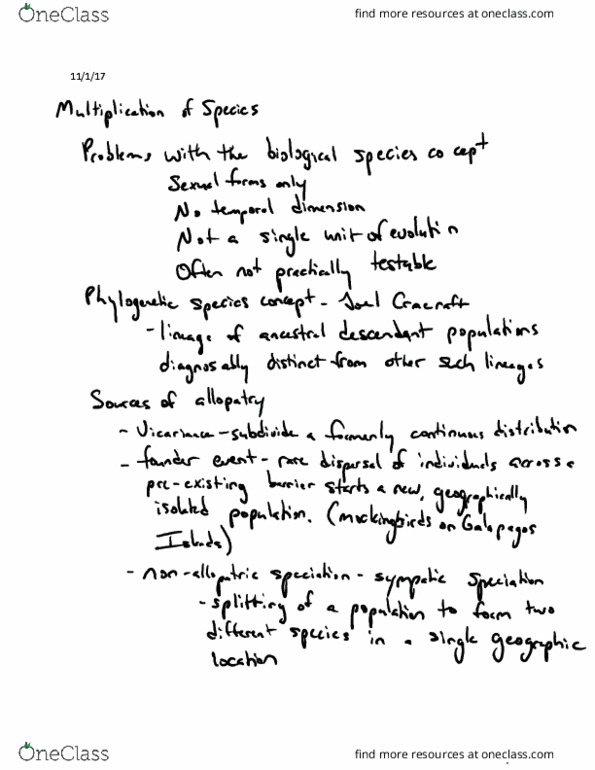 OneClass
find more resources at oneclass.com
11/1/17
Multiplication of Species
Problems with the biological species co cept
Sexual forms only
No temporal dimension
Not a single unit of evoluti n
Often not practically testable
Phylogenetic species concept - Joel Cracraft
- lineage of ancestral descendant populations
diagnosably distinct from other such lineages
Sources of allopatry
- Vicariance - subdivide a formerly continuous distribution
- founder event - rare dispersal of individuals across a
pre-existing barrier starts a new, geographically
isolated population. (mockingbirds on Galapagos
Islands)
- non-allopatric speciation - sympatic speciation
- splitting of a population to form two
different species in a single geographic
location
OneClass
find more resources at oneclass.com